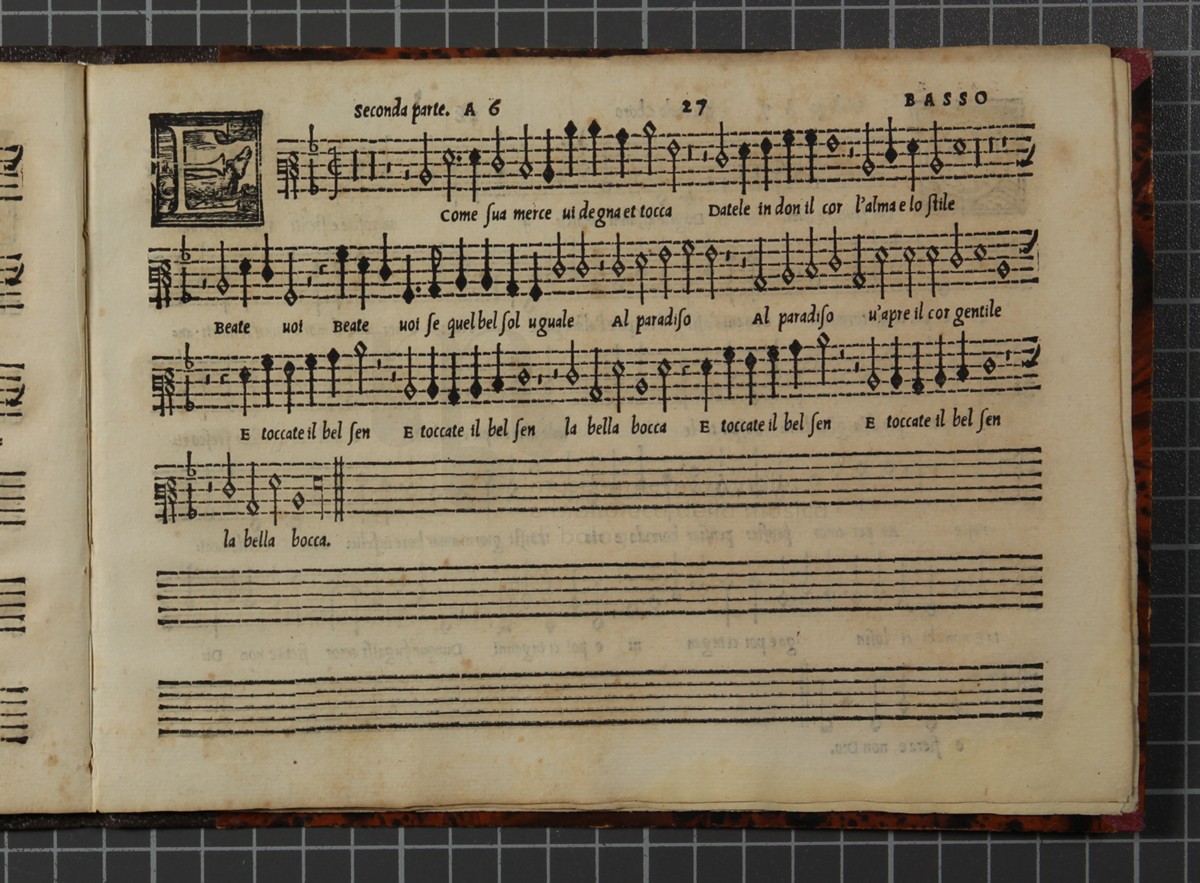 Seconda parte. A 6 27 BASSO
E
Come ſua merce ui degna et tocca Datele in don il cor l'alma e lo ſtile
Beate uoi Beate uoi ſe quel bel ſol uguale Al paradiſo Al paradiſo u'apre il cor gentile
E toccate il bel ſen E toccate il bel ſen la bella bocca E toccate il bel ſen E toccate il bel ſen
la bella bocca.